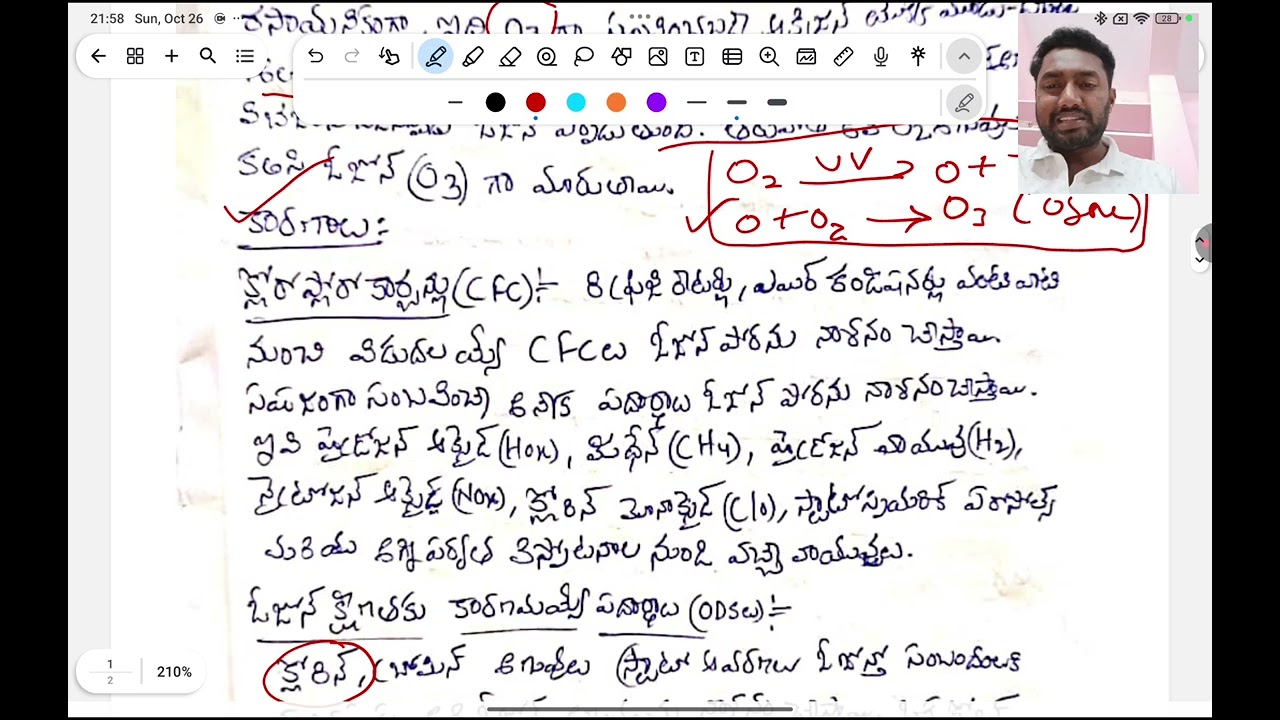 21:58 Sun, Oct 26
28
రసాయనికంగా, ఇది O3 గా
ఓజోన్ ఏర్పడుతుంది.
కలిసి ఓజోన్ (O3) గా మారుతాయి.
O2 UV → O +
O + O2 → O3 (Ozone)
కారణాలు:
క్లోరోఫ్లోరోకార్బన్లు (CFC):- రిఫ్రిజిరేటర్లు, ఎయిర్ కండిషనర్లు వంటి వాటి
నుంచి విడుదలయ్యే CFCలు ఓజోన్ పొరను నాశనం చేస్తాయి.
సహజంగా సంభవించే అనేక పదార్థాలు ఓజోన్ పొరను నాశనం చేస్తాయి.
ఇవి హైడ్రోజన్ ఆక్సైడ్ (HOx), మిథేన్ (CH4), హైడ్రోజన్ వాయువు (H2),
నైట్రోజన్ ఆక్సైడ్ల (NOx), క్లోరిన్ మోనాక్సైడ్ (ClO), స్ట్రాటోస్పియరిక్ ఏరోసోల్స్
మరియు అగ్నిపర్వత విస్ఫోటనాల నుండి వచ్చే వాయువులు.
ఓజోన్ క్షీణతకు కారణమయ్యే పదార్థాలు (ODSలు):-
క్లోరిన్, బ్రోమిన్ అణువులు స్ట్రాటో ఆవరణలు ఓజోన్తో
1
2
210%